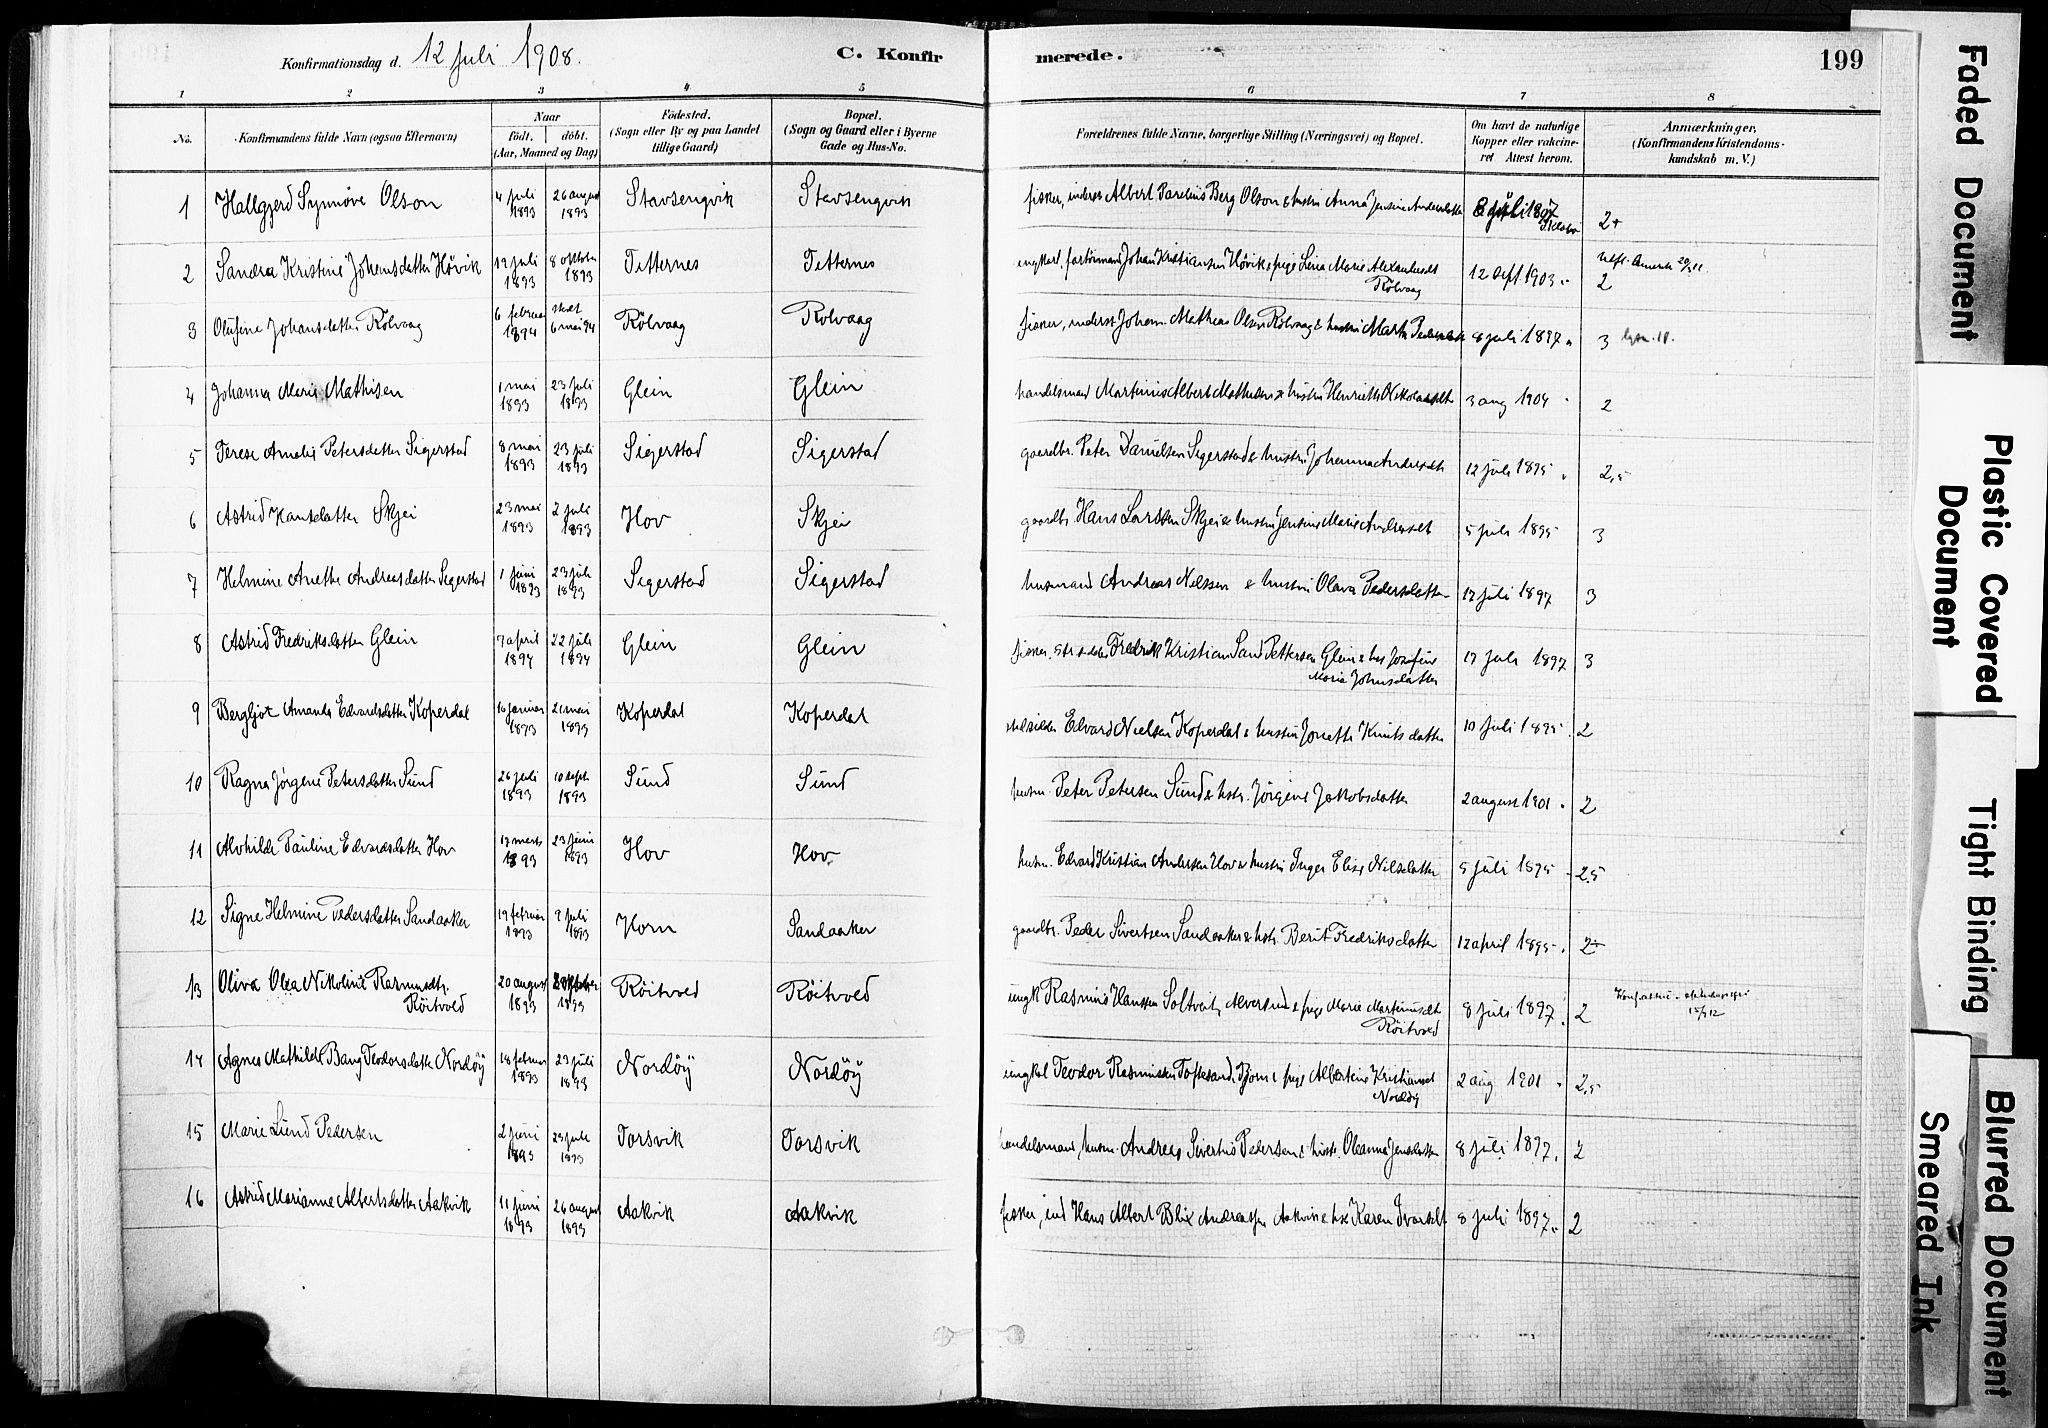 Konfirmationsdag d. 12 Juli 1908. C. Konfirmerede. 199
1 2 3 4 5 6 7 8
No. Konfirmandens fulde Navn (ogsaa Efternavn) Naar født. døbt. (Aar, Maaned og Dag) Fødested. (Sogn eller By og paa Landet tillige Gaard) Bopæl. (Sogn og Gaard eller i Byerne Gade og Hus-No. Forældrenes fulde Navne, borgerlige Stilling (Næringsvei) og Bopæl. Om havt de naturlige Kopper eller vakcineret Attest herom. Anmærkninger. (Konfirmandens Kristendomskundskab m. V.)
1 Hallgjerd Synnøve Olson 4 juli 1893 26 august 1893 Stavsengvik Stavsengvik fisker, inderst Albert Parelius Berg Olson & hustru Anna Jensine Andersdatter 8 juli 1897 2+
2 Sandra Kristine Johansdatter Høvik 19 juli 1893 8 oktober 1893 Titternes Titternes ungkarl, Johan Kristiansen Høvik & pige Lina Marie Alexandersdt Rølvaag 12 sept 1903 2
3 Olufine Johansdatter Rølvaag 6 februar 1894 6 mai 94 Rølvaag Rølvaag fisker, inderst Johan Mathias Olsen Rølvaag & hustru Marth Pedersdatter 8 juli 1897 3
4 Johanna Marie Mathisen 1 mai 1893 23 juli 1893 Glein Glein handelsmand Martinus Albert Mathisen & hustru Henriette Nikolaisdt 3 aug 1904 2
5 Terese Amalie Petersdatter Sigerstad 8 mai 1893 23 juli 1893 Sigerstad Sigerstad gaardbr. Peter Danielsen Sigerstad & hustru Johanna Andersdt 12 juli 1895 2,5
6 Astrid Hansdatter Skjei 23 mai 1893 2 juli 1893 Hov Skjei gaardbr. Hans Larssen Skjei & hustru Jensine Marie Andersdt 5 juli 1895 3
7 Helmine Anette Andreasdatter Segerstad 1 juni 1893 23 juli 1893 Sigerstad Sigerstad husmand Andreas Nilssen & hustru Olava Pedersdatter 17 juli 1897 3
8 Astrid Fredriksdatter Glein 17 april 1894 22 juli 1894 Glein Glein fisker, Fredrik Kristian Sand Pettersen Glein & hus Josefine Marie Johnsdatter 17 juli 1897 3
9 Bergljot Amanda Edvardsdatter Koperdal 10 januar 1893 21 mai 1893 Koperdal Koperdal Edvard Nielsen Koperdal & hustru Jonette Knutsdatter 10 juli 1895 2
10 Ragna Jørgene Petersdatter Sund 26 juli 1893 10 sept 1893 Sund Sund husm. Peter Petersen Sund & hstr. Jørgine Jakobsdatter 2 august 1901 2
11 Alvhilde Pauline Edvardsdatter Hov 17 marts 1893 23 juni 1893 Hov Hov husm. Edvard Kristian Andersen Hov & hustru Inger Elise Nilsdatter 5 juli 1895 2,5
12 Signe Helmine Pedersdatter Sandaaker 19 februar 1893 9 juli 1893 Horn Sandaaker gaardbr. Peder Sivertsen Sandaaker & hstr. Berit Fredriksdatter 12 april 1895 2÷
13 Oliva Olea Nikoline Rasmusdtr. Røitvold 20 august 1893 oktober 1893 Røitvold Røitvold ungk Rasmus Hanssen Soltveit, Alversund & pige Marie Martinusdt Røitvold 8 juli 1897 2
14 Agnes Mathilde Bang Teodorsdatter Nordøy 18 februar 1893 23 juli 1893 Nordøy Nordøy ungkl Teodor Rasmussen Toftesand, Bjorn & pige Albertine Kristiansdt Nordøy 2 aug 1901 2,5
15 Marie Lund Pedersen 2 juni 1893 23 juli 1893 Torsvik Torsvik handelsmand, husm. Andreas Sivertius Pedersen & hustr. Oleanna Jensdatter 8 juli 1897. 2
16 Astrid Marianne Albertsdatter Aakvik 11 juni 1893 26 august 1893 Aakvik Aakvik fisker, ind Hans Albert Blix Andreassen Aakvik & hst Karen Ivarsdt 8 juli 1897 2
Faded Document
Plastic Covered Document
Tight Binding
Blurred Document
Smeared Ink